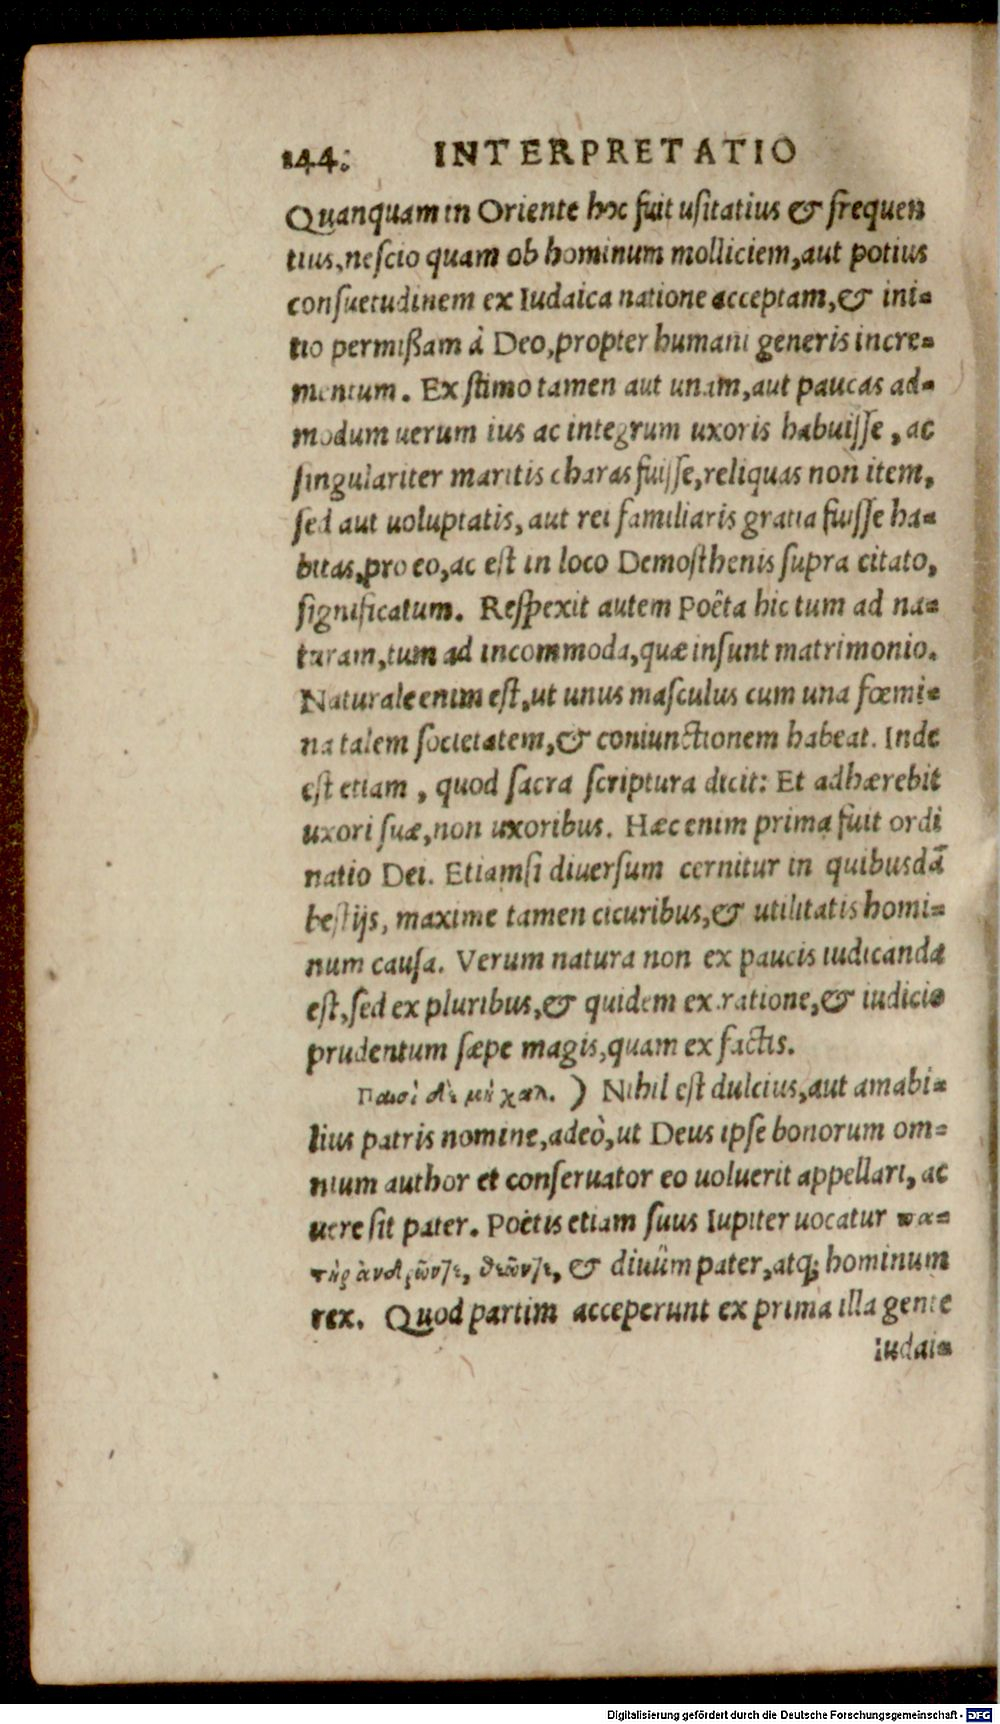 144. INTERPRETATIO
Quanquam in Oriente hoc fuit usitatius & frequen
tius, nescio quam ob hominum molliciem, aut potius
consuetudinem ex Iudaica natione acceptam, & ini-
tio permißam à Deo, propter humani generis incre-
mentum. Exstimo tamen aut unam, aut paucas ad-
modum uerum ius ac integrum uxoris habuisse, ac
singulariter maritis charas fuisse, reliquas non item,
sed aut uoluptatis, aut rei familiaris gratia fuisse ha-
bitas, pro eo, ac est in loco Demosthenis supra citato,
significatum. Respexit autem Poêta hic tum ad na-
turam, tum ad incommoda, quæ insunt matrimonio.
Naturale enim est, ut unus masculus cum una fœmi-
na talem societatem, & coniunctionem habeat. Inde
est etiam, quod sacra scriptura dicit: Et adhærebit
uxori suæ, non uxoribus. Hæc enim prima fuit ordi
natio Dei. Etiamsi diuersum cernitur in quibusdā
bestijs, maxime tamen cicuribus, & utilitatis homi-
num causa. Verum natura non ex paucis iudicanda
est, sed ex pluribus, & quidem ex ratione, & iudicio
prudentum sæpe magis, quam ex factis.
Παισὶ δὲ μὴ χαλ. ) Nihil est dulcius, aut amabi-
lius patris nomine, adeò, ut Deus ipse bonorum om-
nium author et conseruator eo uoluerit appellari, ac
uere sit pater. Poëtis etiam suus Iupiter uocatur πα-
τὴρ ἀνδρῶντε, θεῶντε, & diuûm pater, atq; hominum
rex. Quod partim acceperunt ex prima illa gente
Iudai-
Digitalisierung gefördert durch die Deutsche Forschungsgemeinschaft - DFG